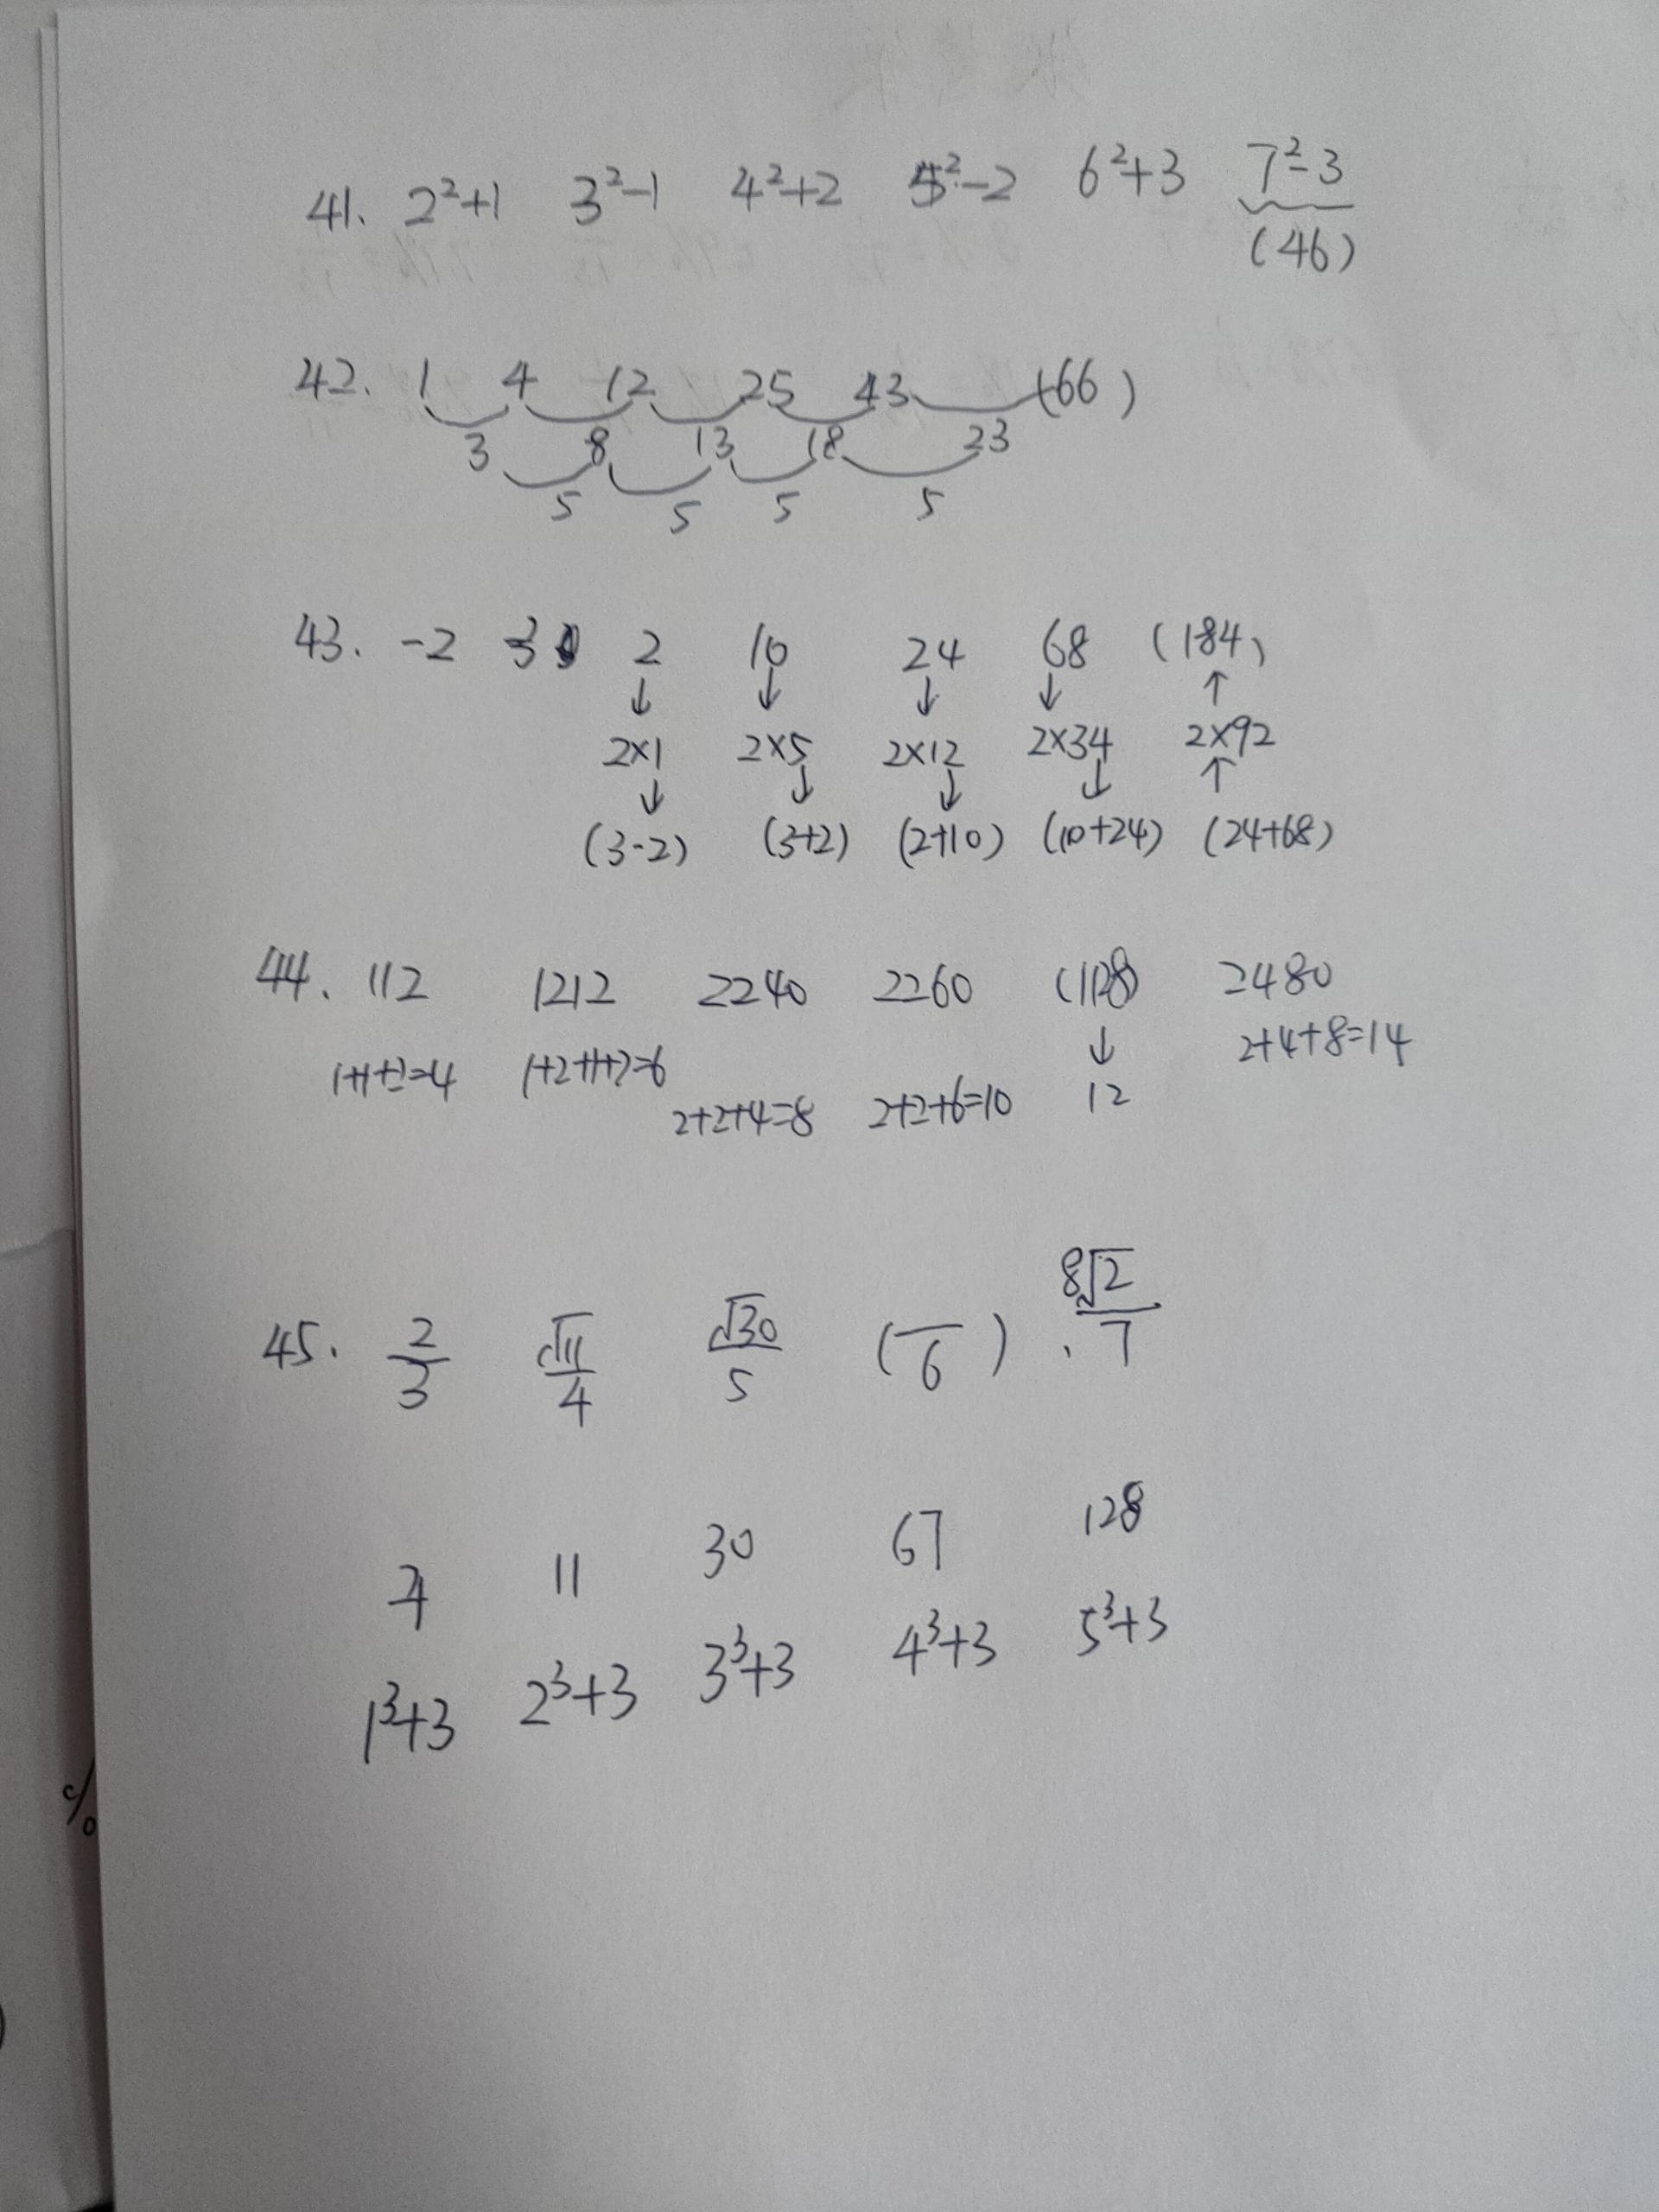 41. 2²+1 3²-1 4²+2 5²-2 6²+3 7²-3
(46)
42. 1 4 12 25 43 (66)
3 8 13 18 23
5 5 5 5
43. -2 3 2 10 24 68 (184)
↓ ↓ ↓ ↓ ↑
2×1 2×5 2×12 2×34 2×92
↓ ↓ ↓ ↓ ↑
(3-2) (3+2) (2+10) (10+24) (24+68)
44. 112 1212 2240 2260 (1128) 2480
↓
1+1+2=4 1+2+1+2=6 2+2+4=8 2+2+6=10 12 2+4+8=14
45. 2/3 √11/4 √30/5 ( /6) 8√2/7
4 11 30 67 128
1³+3 2³+3 3³+3 4³+3 5³+3
%